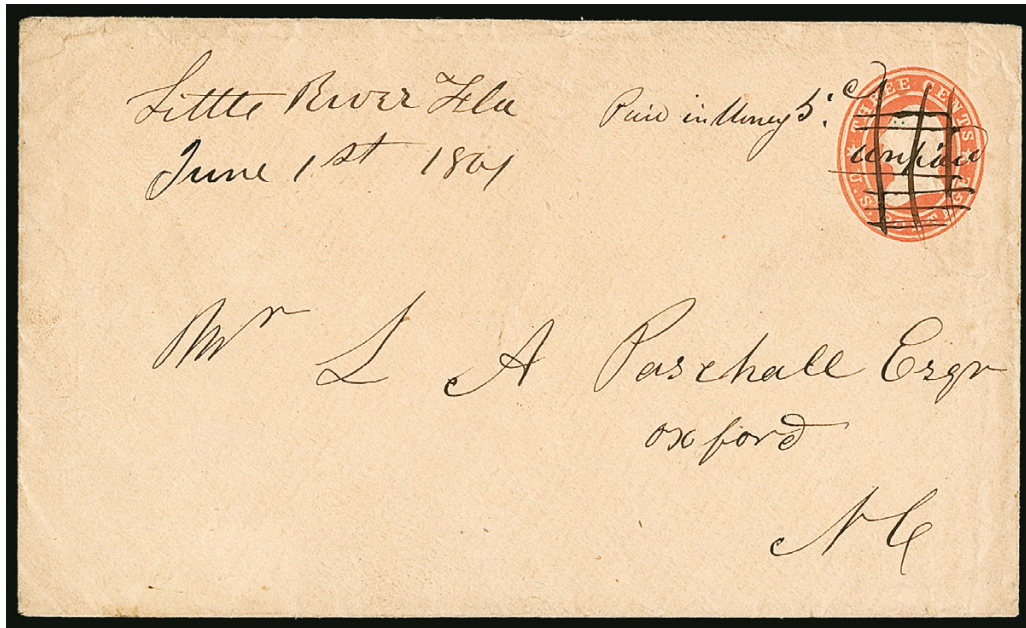 Little River Fla
June 1st 1861
Paid in Money 5c
THREE CENTS
unpaid
U.S. POSTAGE
Mr L A Paschall Esqr
oxford
N C